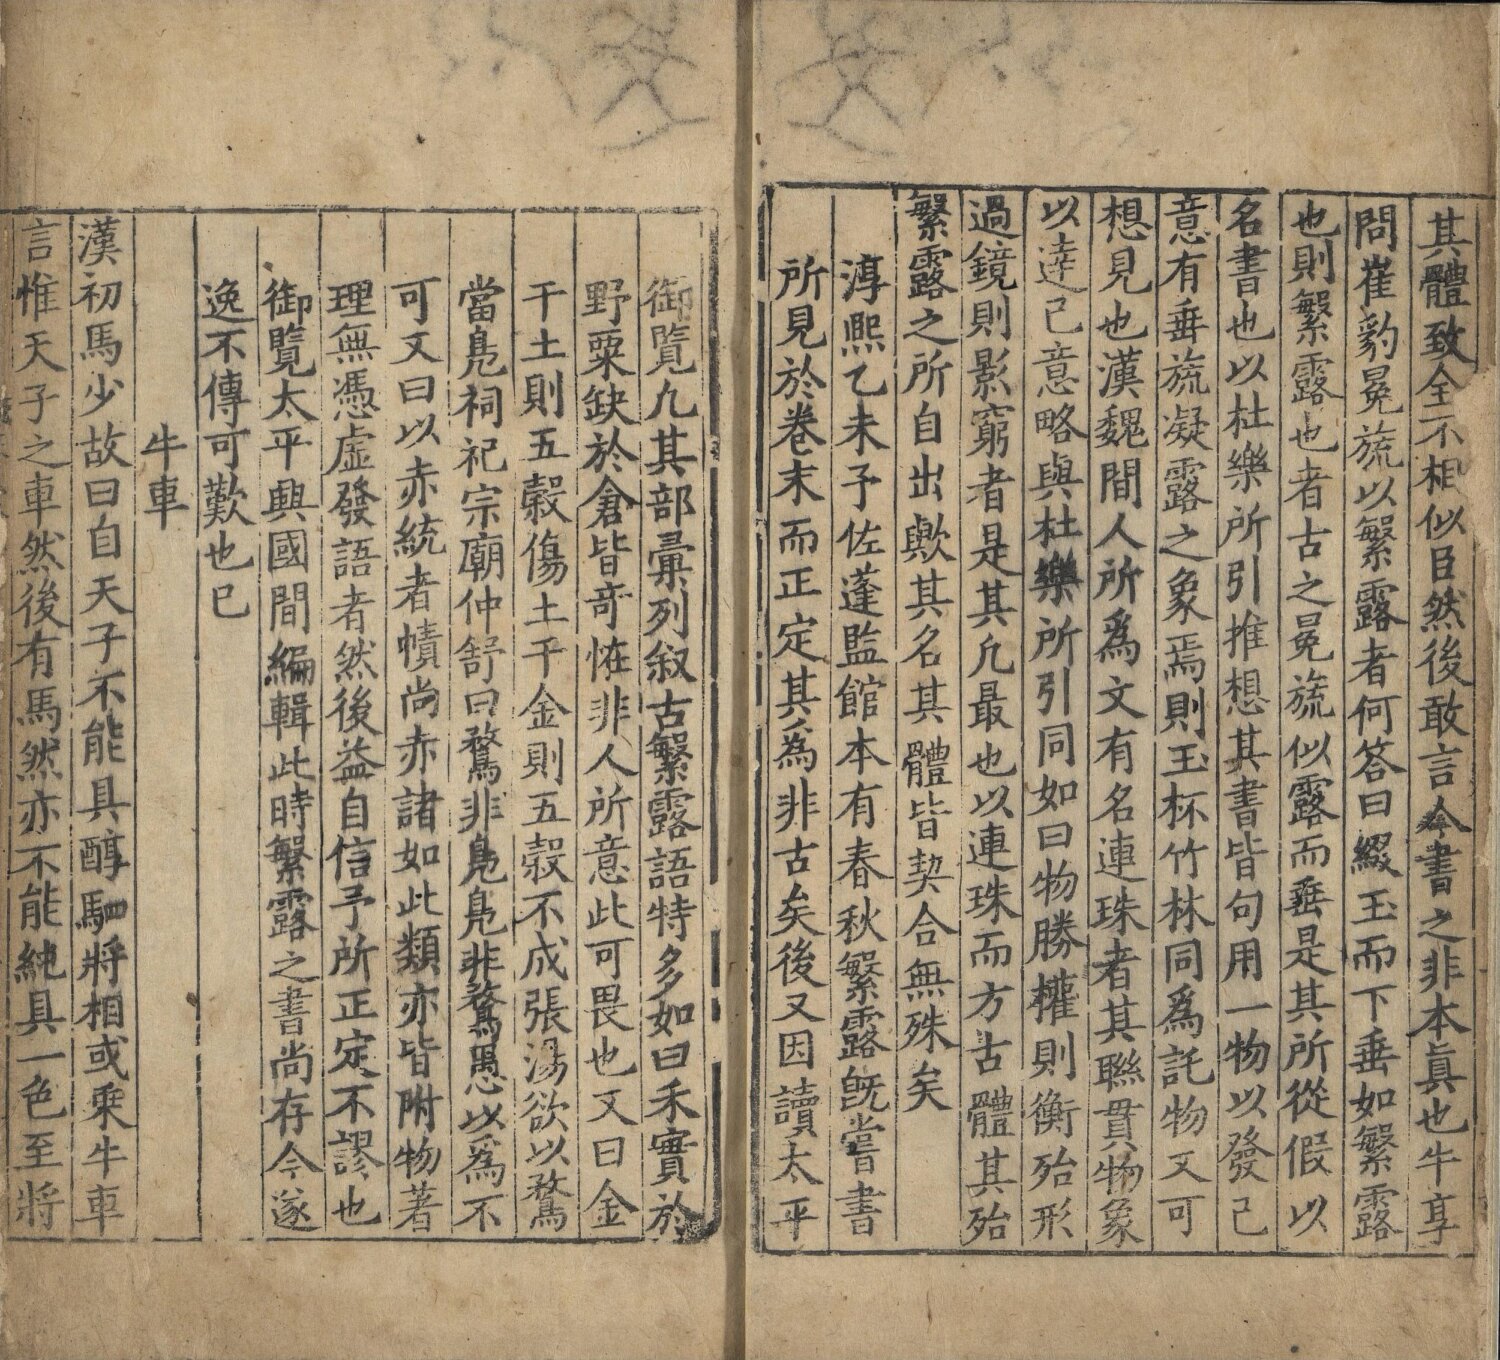 其體致全不相似臣然後敢言今書之非本眞也牛亨
問崔豹冕旒以繁露者何答曰綴玉而下垂如繁露
也則繁露也者古之冕旒似露而垂是其所從假以
名書也以杜樂所引推想其書皆句用一物以發己
意有垂旒凝露之象焉則玉杯竹林同爲託物又可
想見也漢魏間人所爲文有名連珠者其聯貫物象
以達己意略與杜樂所引同如曰物勝權則衡殆形
過鏡則影窮者是其凡最也以連珠而方古體其殆
繁露之所自出歟其名其體皆契合無殊矣
淳熙乙未予佐蓬監館本有春秋繁露旣嘗書
所見於卷末而正定其為非古矣後又因讀太平
御覽凡其部彙列叙古繁露語特多如曰禾實於
野粟缺於倉皆奇恠非人所意此可畏也又曰金
干土則五穀傷土干金則五穀不成張湯欲以鶩
當鳧祠祀宗廟仲舒曰鶩非鳧鳧非鶩愚以爲不
可又曰以赤統者幘尚赤諸如此類亦皆附物著
理無憑虛發語者然後益自信予所正定不謬也
御覽太平興國間編輯此時繁露之書尚存今遂
逸不傳可歎也已
牛車
漢初馬少故曰自天子不能具醇駟將相或乗牛車
言惟天子之車然後有馬然亦不能純具一色至將